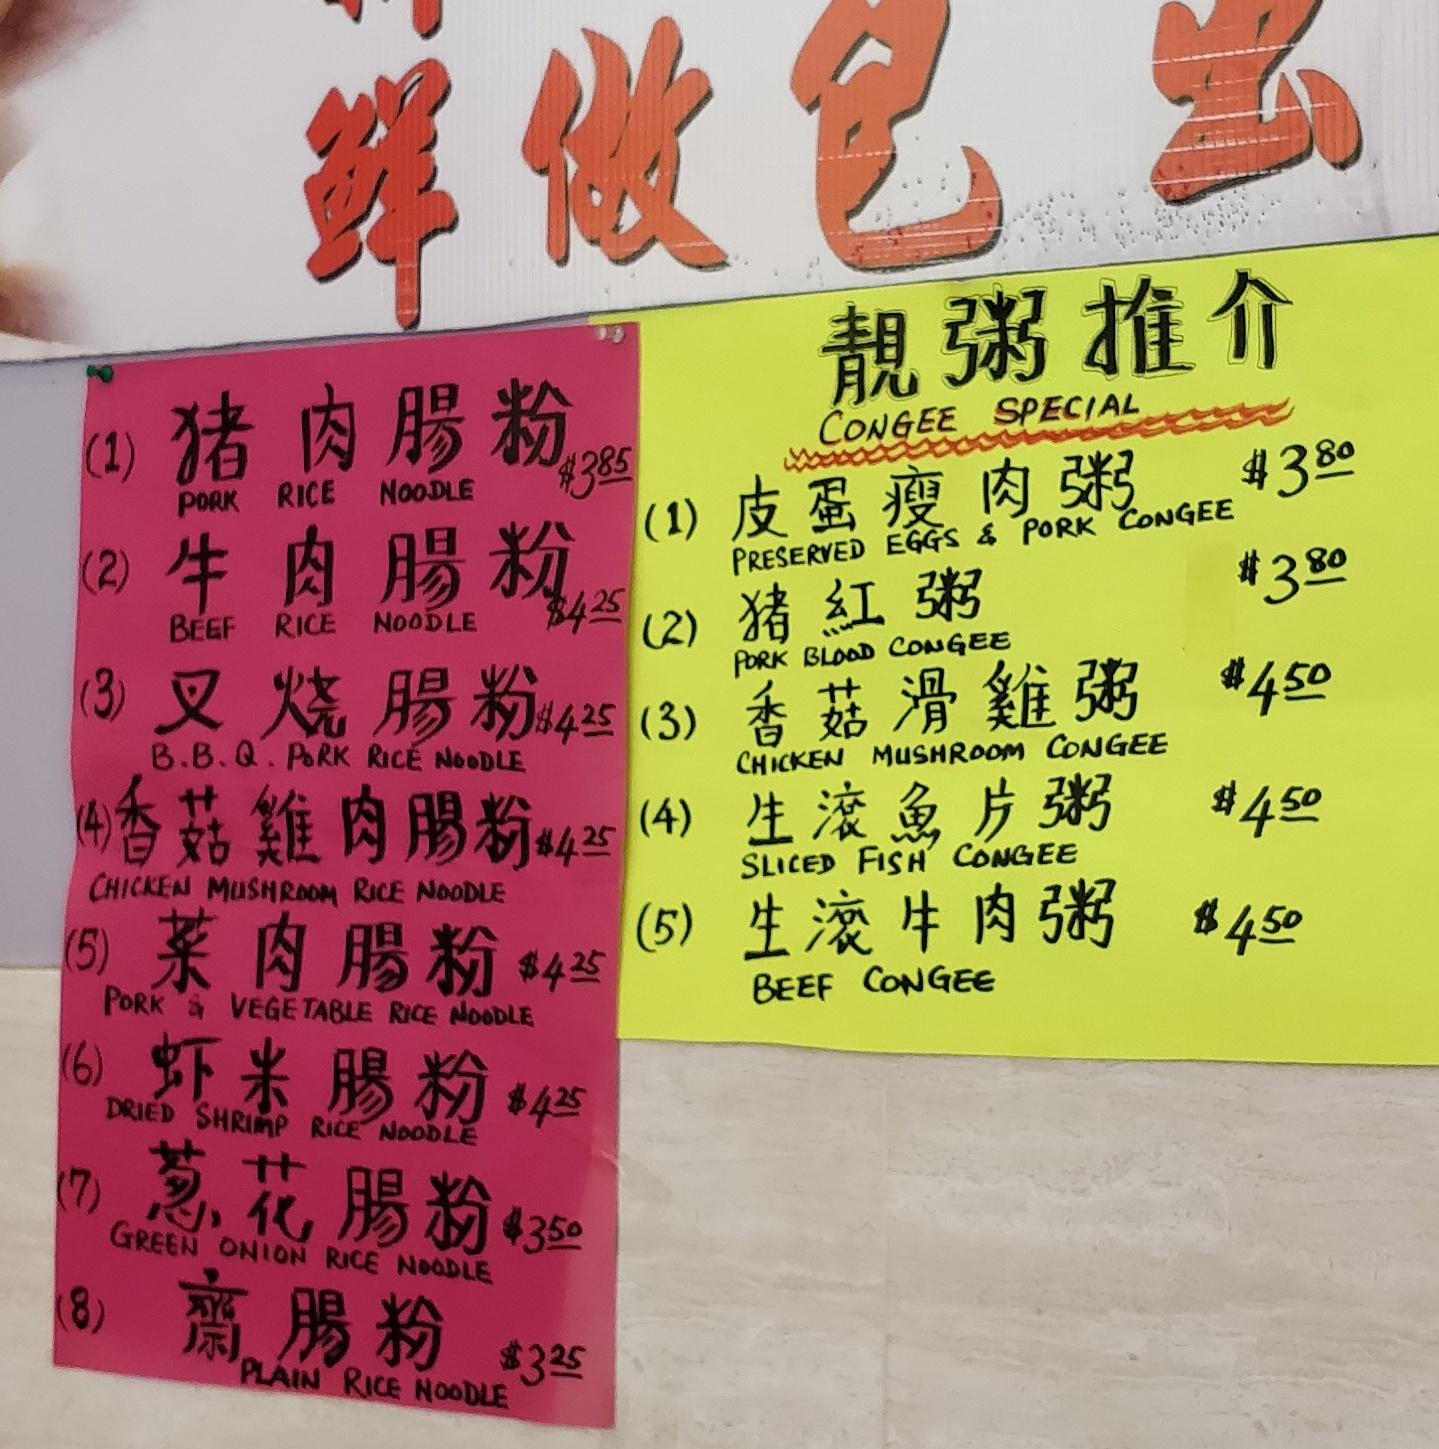 鮮做包點
(1) 猪肉腸粉 $3.85
PORK RICE NOODLE
(2) 牛肉腸粉 $4.25
BEEF RICE NOODLE
(3) 叉烧腸粉 $4.25
B.B.Q. PORK RICE NOODLE
(4) 香菇雞肉腸粉 $4.25
CHICKEN MUSHROOM RICE NOODLE
(5) 菜肉腸粉 $4.25
PORK & VEGETABLE RICE NOODLE
(6) 虾米腸粉 $4.25
DRIED SHRIMP RICE NOODLE
(7) 葱花腸粉 $3.50
GREEN ONION RICE NOODLE
(8) 齋腸粉 $3.25
PLAIN RICE NOODLE
靚粥推介
CONGEE SPECIAL
(1) 皮蛋瘦肉粥 $3.80
PRESERVED EGGS & PORK CONGEE
(2) 猪紅粥 $3.80
PORK BLOOD CONGEE
(3) 香菇滑雞粥 $4.50
CHICKEN MUSHROOM CONGEE
(4) 生滾魚片粥 $4.50
SLICED FISH CONGEE
(5) 生滾牛肉粥 $4.50
BEEF CONGEE